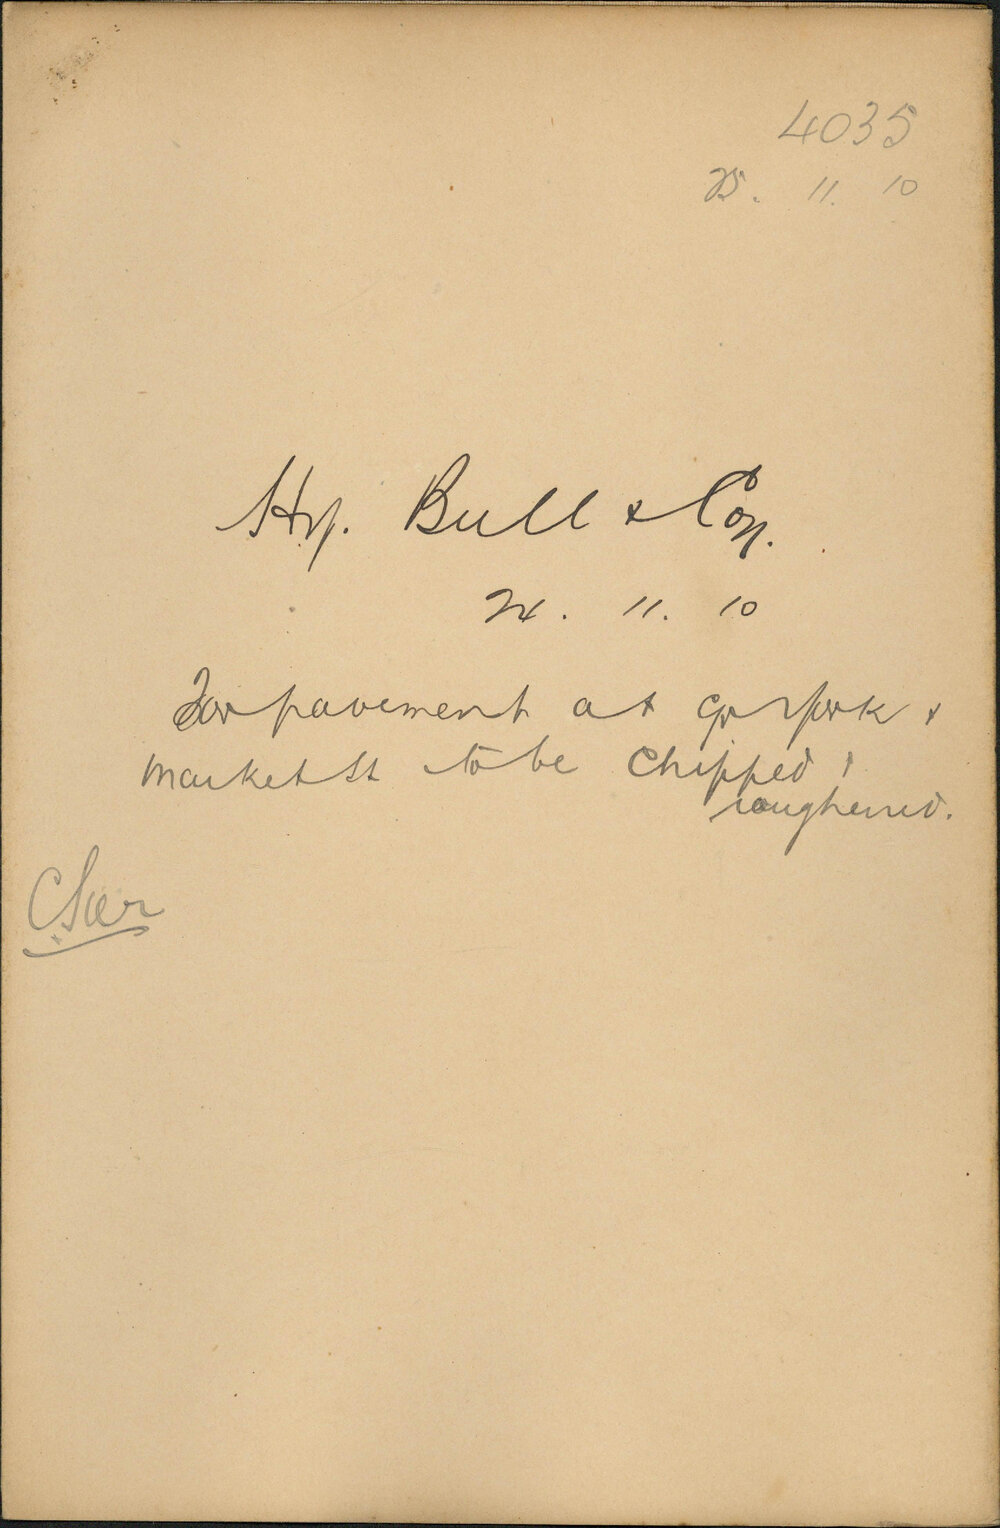 4035
25. 11. 10
Hy. Bull & Coy.
24. 11. 10
For pavement at Cr York &
Market St to be chipped &
roughened.